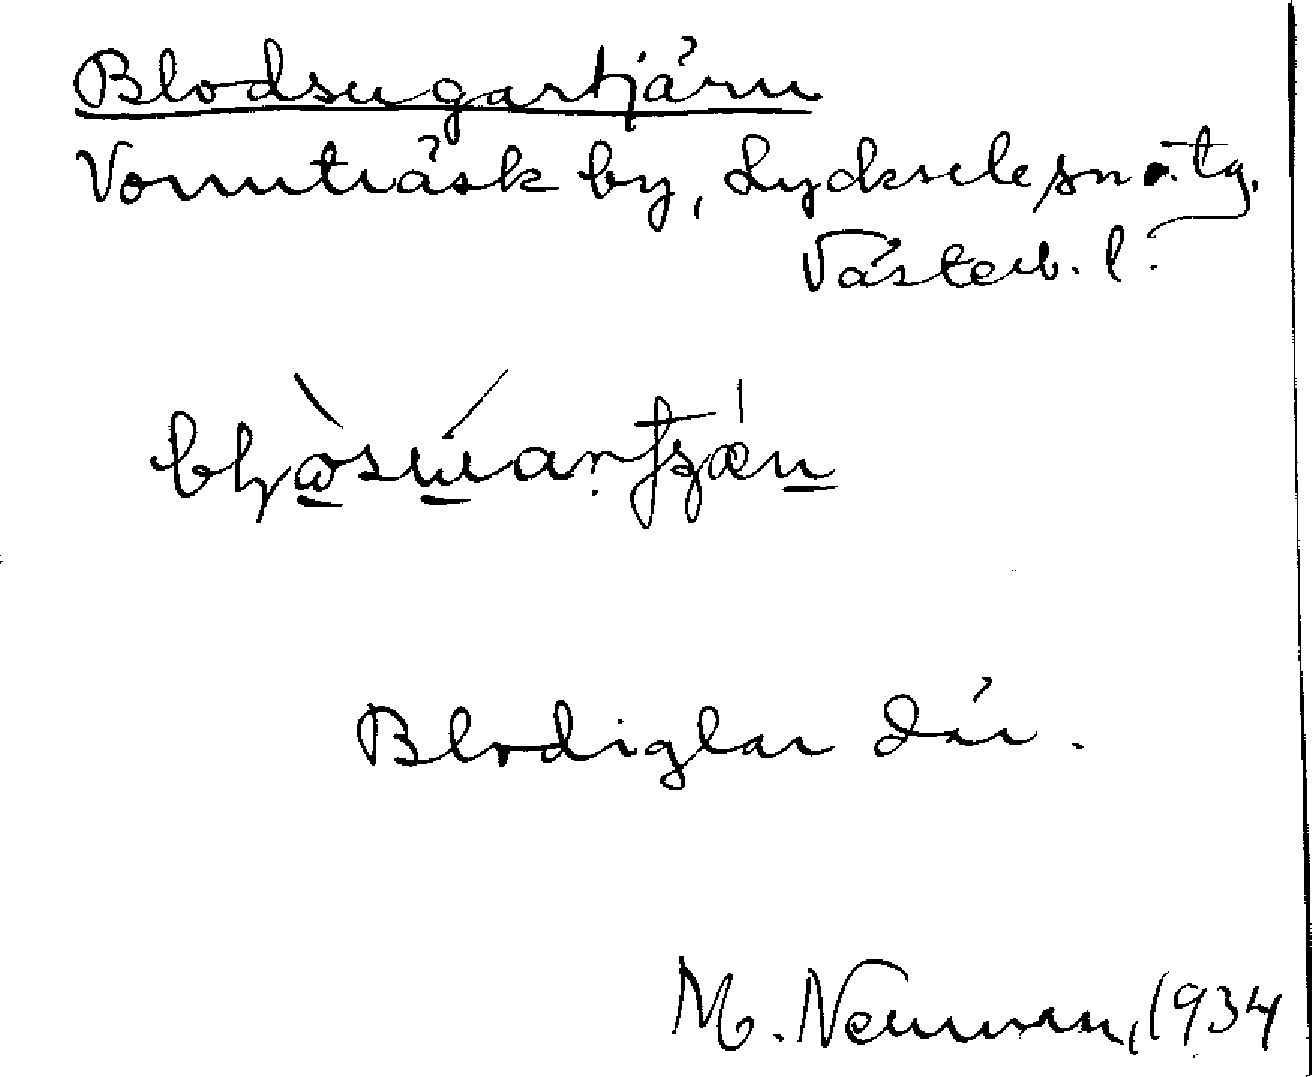 Blodsugartjärn
Vormträsk by, Lycksele sn o. tg.
Västerb. l.
Blodiglar där.
M. Neuman, 1934